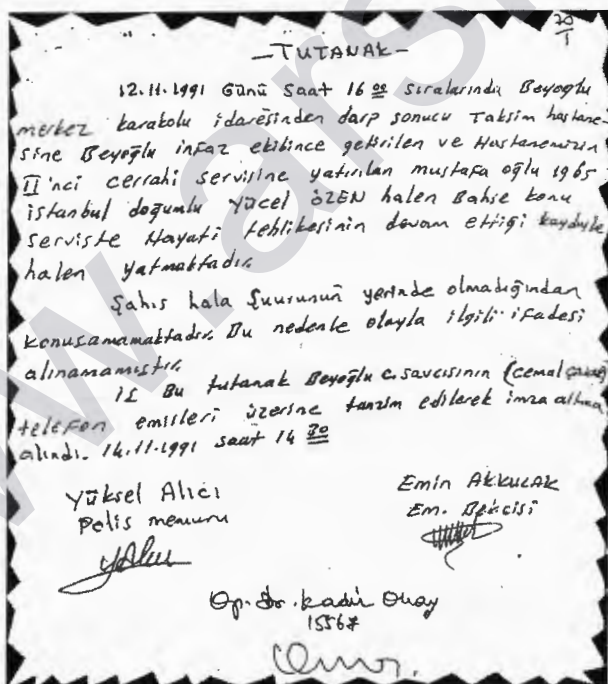 20
1
-TUTANAK-
12.11.1991 Günü Saat 16 00 sıralarında Beyoğlu
merkez karakolu idaresinden darp sonucu Taksim hastane-
sine Beyoğlu infaz ekibince getirilen ve Hastanemizin
II'nci cerrahi servisine yatırılan mustafa oğlu 1965
istanbul doğumlu Yücel ÖZEN halen Bahse konu
serviste Hayati tehlikesinin devam ettiği kaydıyla
halen yatmaktadır.
Şahıs hala Şuurunun yerinde olmadığından
konuşamamaktadır. Bu nedenle olayla ilgili ifadesi
alınamamıştır.
İş Bu tutanak Beyoğlu C.savcısının (cemal
telefon emirleri üzerine tanzim edilerek imza altına
alındı. 14.11.1991 saat 14 30
Yüksel Alıcı
Polis memuru
Emin AKKULAK
Em. Bekçisi
Op. Dr. Kadir Onay
15567